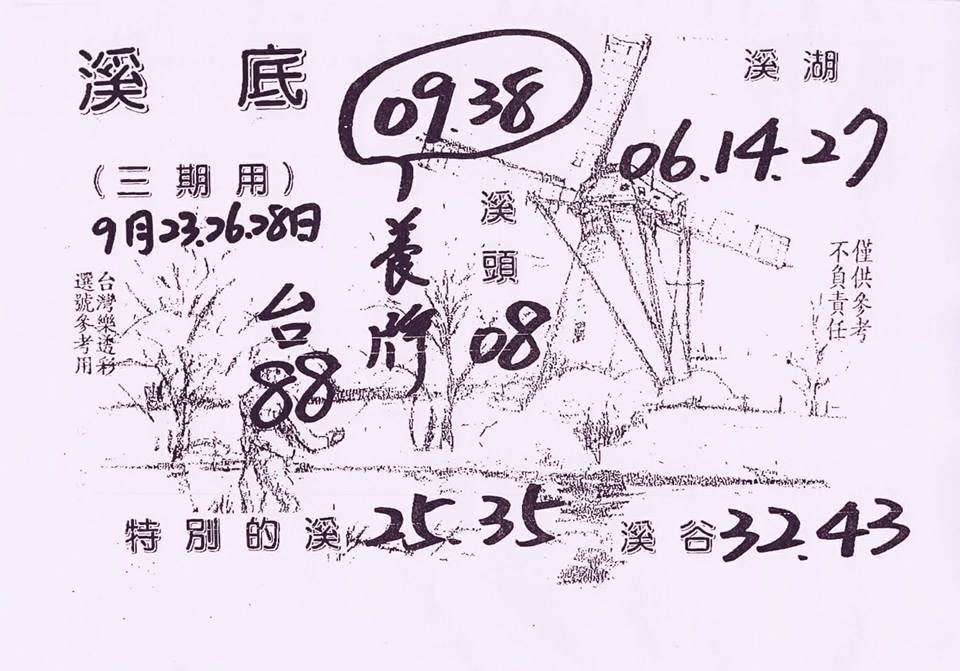 溪底
09.38
養牌
溪湖
06.14.27
(三期用)
9月23.26.28日
溪頭
08
台
88
台灣樂透彩
選號參考用
僅供參考
不負責任
特別的溪 25.35
溪谷 32.43